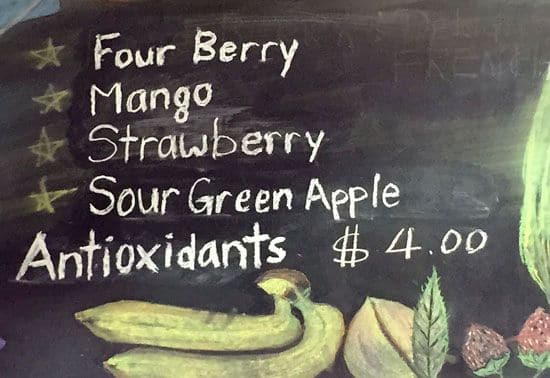 Four Berry
Mango
Strawberry
Sour Green Apple
Antioxidants $4.00